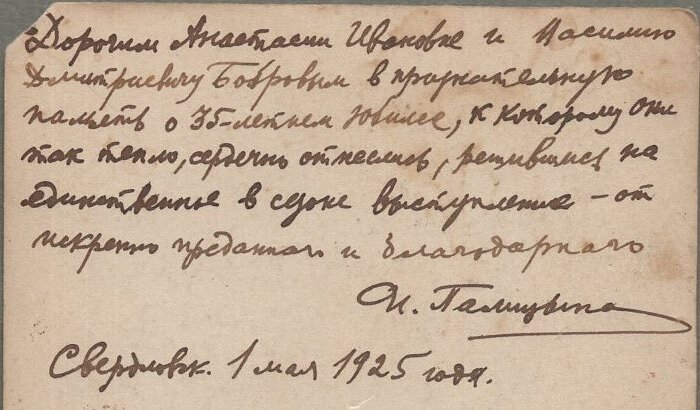 Дорогим Анастасии Ивановне и Василию
Дмитриевичу Бобровым в признательную
память о 35-летнем юбилее, к которому они
так тепло, сердечно отнеслись, решившись на
единственное в сезоне выступление – от
искренно преданного и благодарного
И. Палицына
Свердловск. 1 мая 1925 года.